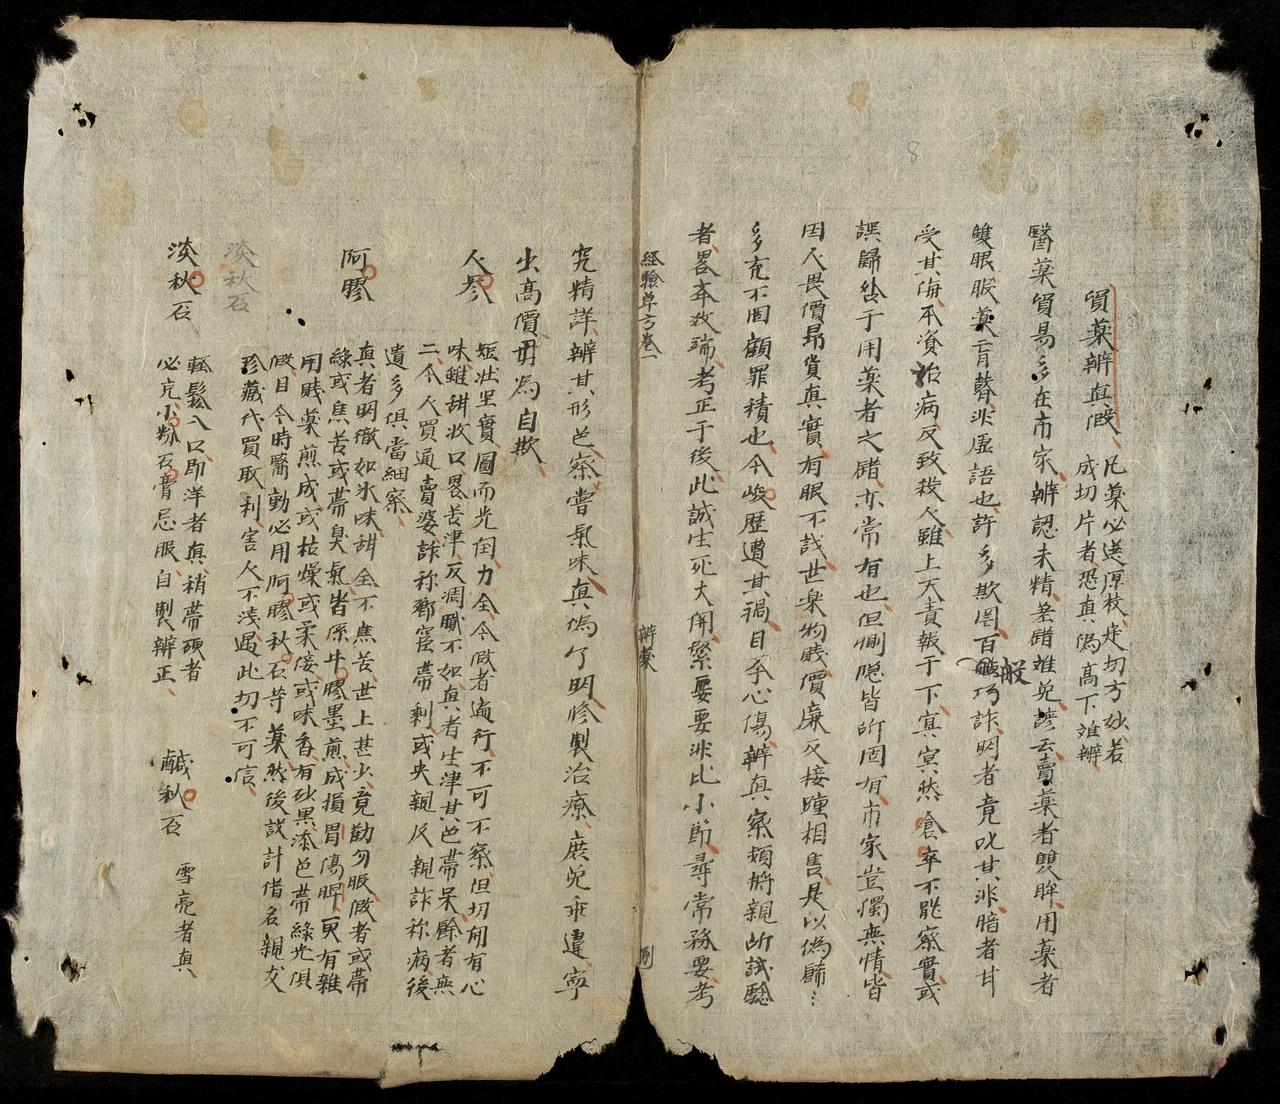 貿藥辨真假、凡藥必送原枝、走切方妙、若
成切片者、恐真偽高下難辨、
醫藥貿易、多在市家、辨認未精、差錯難免、諺云、賣藥者雙眸、用藥者
雙眼、服藥盲瞽、非虛語也、許多欺罔、百般巧詐、明者竟叱其非、暗者甘
受其侮、本資治病、反致殺人、雖上天責報于下、冥冥然倉卒不能察實、或
誤歸咎于用藥者之錯、亦常有也、但惻隱皆所固有、市家豈獨無情、皆
因人畏價昂、貨真實、有眼不識、世樂物賤價廉、反接踵相售、是以偽飾
多充、不固顧罪積也、今峻歷遭其禍、目矛心傷、辨真察類、將親所試驗
者、畧弁敘端、考正于後、此誠生死大關、緊要要非比小節、尋常務要考
經驗单方卷一 辨藥
究精詳、辨其形色、察嘗氣味、真偽分明、修製治療、庶免乖違、寧
出高價、毋為自欺、
人參 短壯堅實、圓而光閏、力全、今假者遍行、不可不察、但切開有心
味、雖甜收口畧苦津、反凋膩不如真者生津、其色帶呆、餘者無
二、今人買通賣婆、詐称鄉宦帶剩、或央親反親、詐称病後
遺多、俱當細察、
阿膠 真者明徹如氷、味甜、全不焦苦、世上甚少、竟勸勿服、假者或帶
綠、或焦苦、或帶臭氣、皆係牛膠墨煎成、損胃傷脾、更有雜
用賤藥煎成、或枯燥、或柔傻、或味香、有砂黑漆色、帶綠光、俱
假、目今時醫、動必用阿膠秋石等藥、然後設計借名親友
珍藏、代買取利、害人不淺、遇此切不可信、
淡秋石
淡秋石 輕鬆入口即洋者真、稍帶硬者
必充小粉石膏忌服、自製辨正、
鹹秋石 雪亮者真